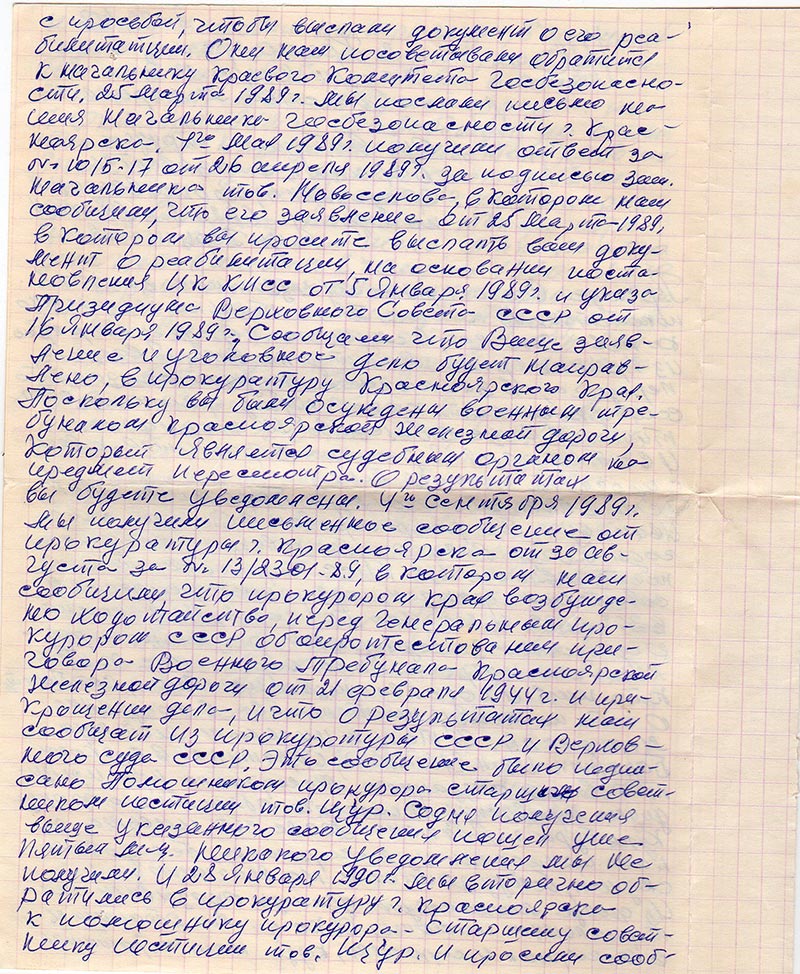 с просьбой, чтобы выслали документ о его реа-
билитации. Они нам посоветовали обратится
к начальнику Краевого Комитета госбезопасно-
сти. 25 Марта 1989 г. мы послали письмо на
имя Начальника госбезопасности г. Крас-
ноярска. 1го Мая 1989 г. получили ответ за
№ 10/5-17 от 26 апреля 1989 г. за подписью зам.
Начальника тов. Новоселова, в котором нам
сообщили, что его заявление от 25 Марта-1989,
в котором вы просите выслать вам доку-
мент о реабилитации, на основании поста-
новления ЦК КПСС от 5 Января 1989 г. и указа
Призидиума Верховного Совета СССР от
16 Января 1989 г. Сообщаем что Ваше заяв-
ление и уголовное дело будет направ-
лено, в прокуратуру Красноярского Края.
Поскольку вы были осуждены военным тре-
буналом Красноярской железной дороги,
который является судебным органом на
предмет пересмотра. О результатах
вы будете уведомлены. 4го сентября 1989 г.
мы получили письменное сообщение от
прокуратуры г. Красноярска от 30 ав-
густа за № 13/2301-89, в котором нам
сообщили, что прокурором края возбужде-
но ходотайство, перед Генеральным про-
курором СССР об опротестовании при-
говора Военного Требунала Красноярской
железной дороги от 21 февраля 1944 г. и пре-
кращении дела, и что о результатах нам
сообщат из прокуратуры СССР и Верхов-
ного суда СССР. Это сообщение было подпи-
сано Помошником прокурора старшим совет-
ником юстиции тов. Щур. Содня получения
выше указанного сообщения пошел уже
пятый м-ц. Никакого уведомления мы не
получили. И 28 Января 1990 г. мы вторично об-
ратились в прокуратуру г. Красноярска
к помошнику прокурора - Старшему совет-
нику юстиции тов. Щур. И просили сооб-